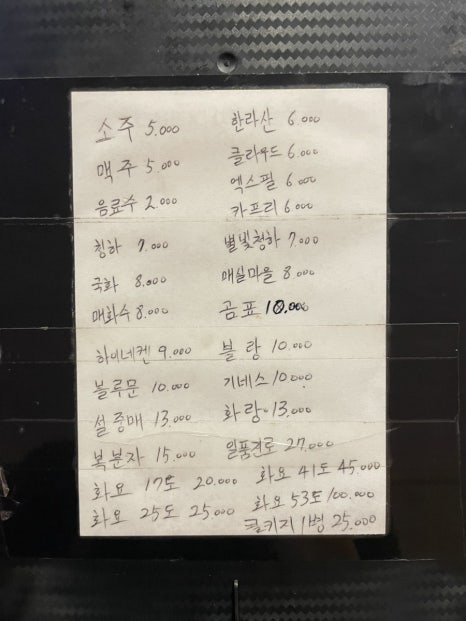 소주 5.000
맥주 5.000
음료수 2.000
청하 7.000
국화 8.000
매화수 8.000
하이네켄 9.000
블루문 10.000
설중매 13.000
복분자 15.000
화요 17도 20.000
화요 25도 25.000
한라산 6.000
클라우드 6.000
엑스필 6.000
카프리 6.000
별빛청하 7.000
매실마을 8.000
곰표 10.000
블랑 10.000
기네스 10.000
화랑 13.000
일품진로 27.000
화요 41도 45.000
화요 53도 100.000
콜키지 1병 25.000